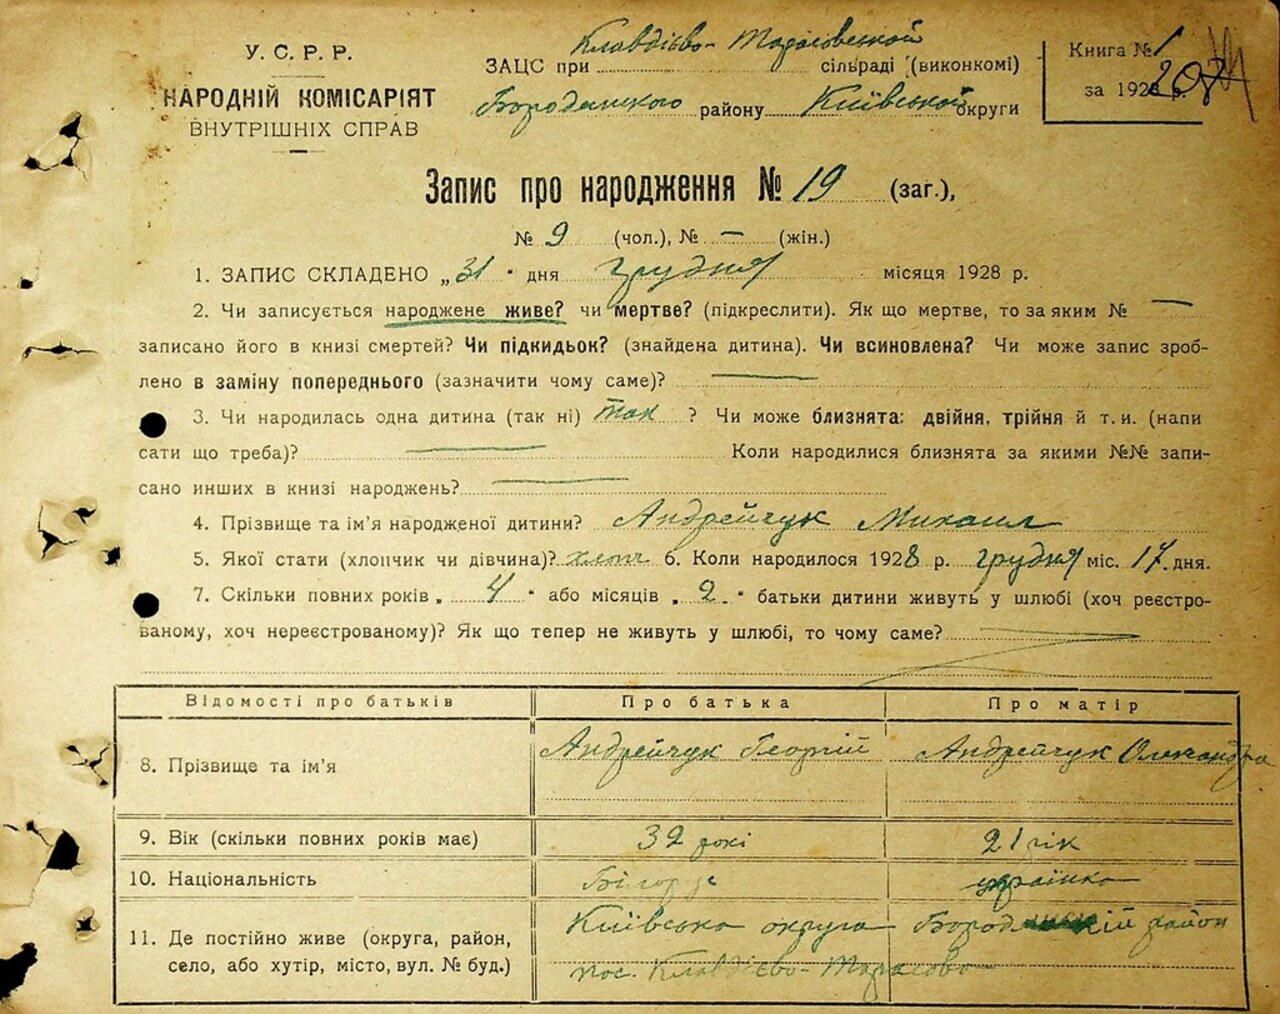 У. С. Р. Р.
НАРОДНІЙ КОМІСАРІЯТ
ВНУТРІШНІХ СПРАВ
ЗАЦС при Клавдієво-Тарасовській сільраді (виконкомі)
Бородянского району Київської округи
Книга № 1
за 1928 р.
207
Запис про народження № 19 (заг.),
№ 9 (чол.), № — (жін.)
1. ЗАПИС СКЛАДЕНО „31" дня грудня місяця 1928 р.
2. Чи записується народжене живе? чи мертве? (підкреслити). Як що мертве, то за яким № —
записано його в книзі смертей? Чи підкидьок? (знайдена дитина). Чи всиновлена? Чи може запис зроб-
лено в заміну попереднього (зазначити чому саме)? —
3. Чи народилась одна дитина (так ні) так ? Чи може близнята: двійня, трійня й т. и. (напи
сати що треба)? — Коли народилися близнята за якими №№ запи-
сано инших в книзі народжень? —
4. Прізвище та ім'я народженої дитини? Андрейчук Михаил
5. Якої стати (хлопчик чи дівчина)? хлопч 6. Коли народилося 1928 р. грудня міс. 17 дня.
7. Скільки повних років „ 4 " або місяців „ 2 " батьки дитини живуть у шлюбі (хоч реєстро-
ваному, хоч нереєстрованому)? Як що тепер не живуть у шлюбі, то чому саме?
Відомості про батьків Про батька Про матір
8. Прізвище та ім'я Андрейчук Георгій Андрейчук Олександра
9. Вік (скільки повних років має) 32 рокі 21 рік
10. Національність українка
11. Де постійно живе (округа, район, Київська округа район
село, або хутір, місто, вул. № буд.) пос. Клавдієво-Тарасово